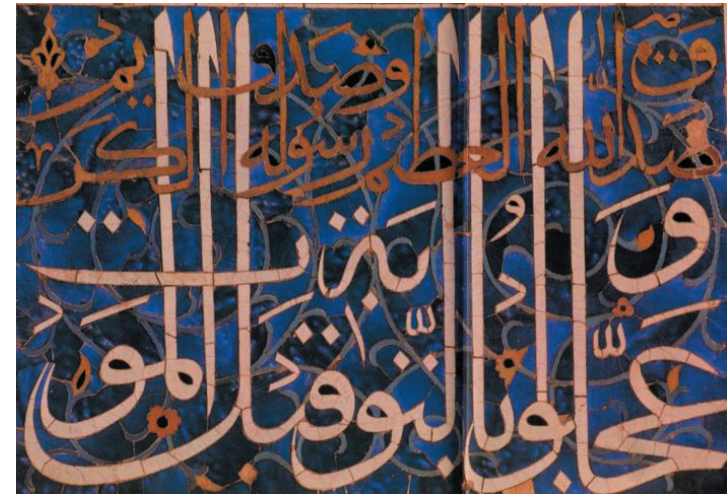 صدق الله العظيم وصدق رسوله الكريم
وعجلوا بالتوبة قبل الموت